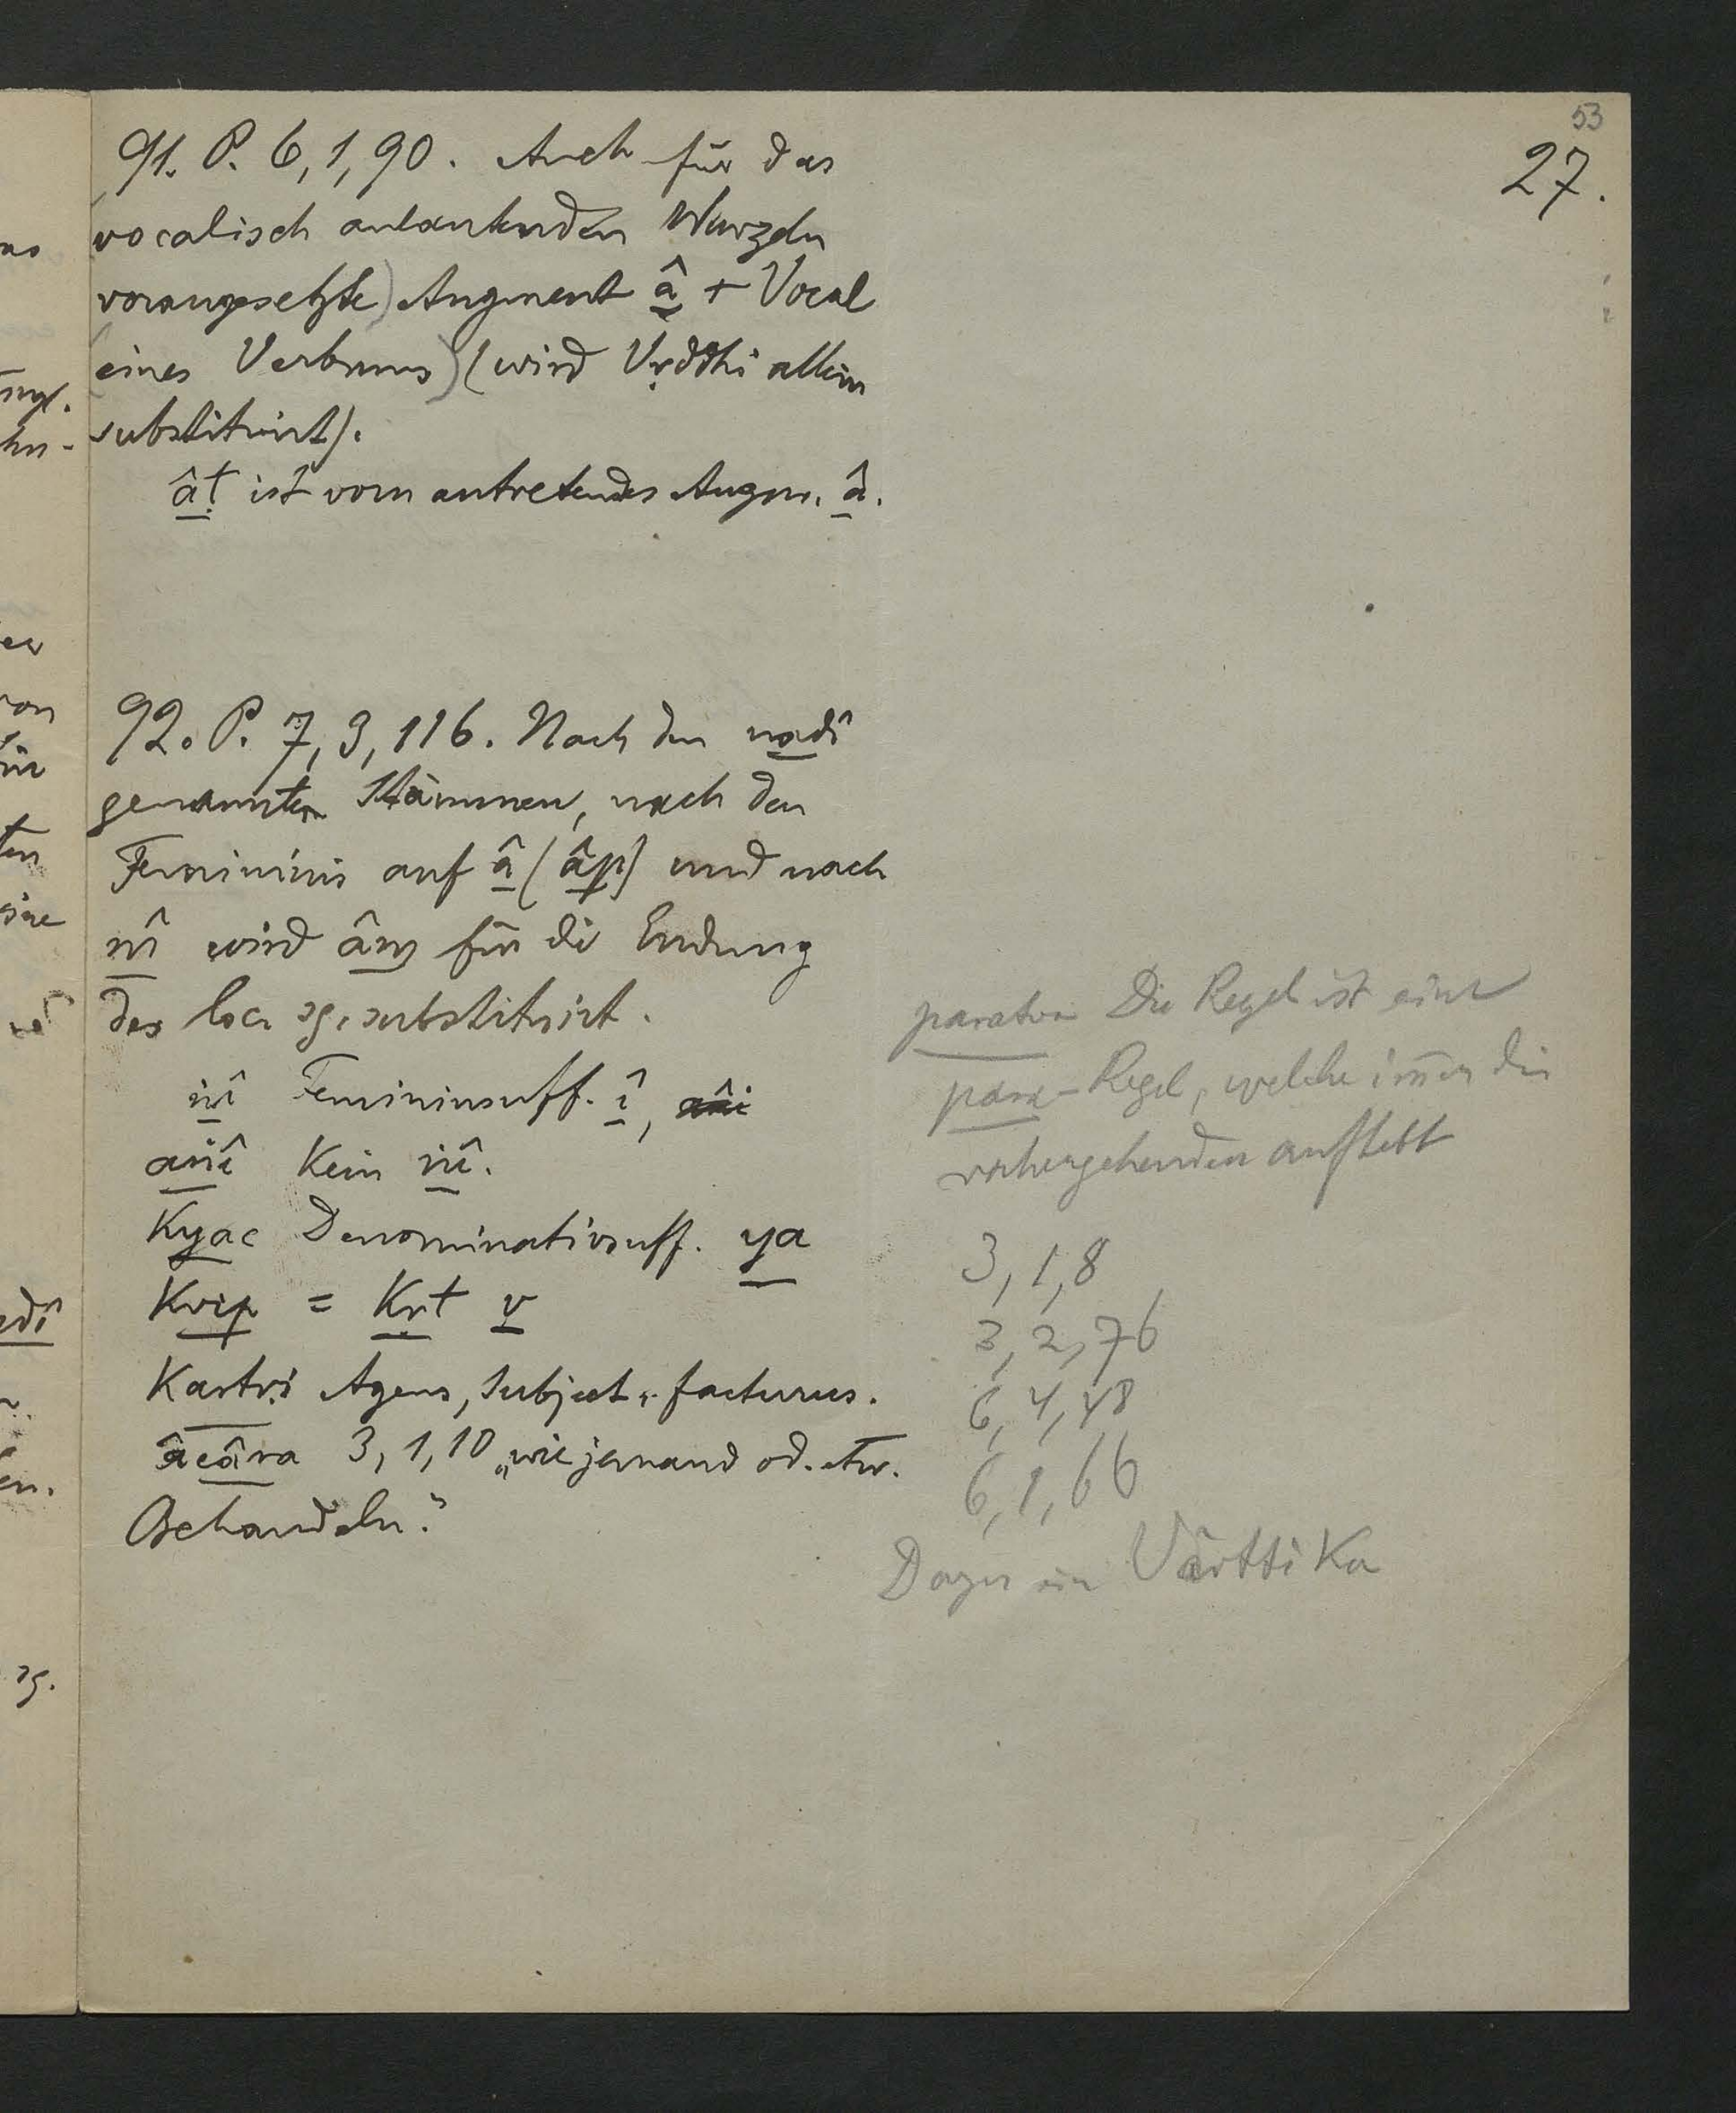 53
27.
91. P. 6,1,90. Auch für das
(vocalisch anlautenden Wurzeln
vorangesetzte) Augment â + Vocal
(eines Verbums) (wird Vṛddhi allein
substituirt).
âṭ ist vorn antretendes Augm. â.
92. P. 7,3,116. Nach den nadî
genannten Stämmen, nach den
Femininis auf â (âp) und nach
nî wird âm für die Endung
des loc. sg. substituirt.
ṅî Femininsuff. î,
aṅî Kein ṅî.
Kyac Denominativsuff. ya
Kvip = Kṛt v
Kartṛi Agens, Subject „facturus.
âcâra 3,1,10 „wie jemand od. etw.
Behandeln."
paratva Die Regel ist eine
para-Regel, welche im̄er die
vorhergehenden aufhebt
3,1,8
3,2,76
6,4,48
6,1,66
Dazu ein Vârttika